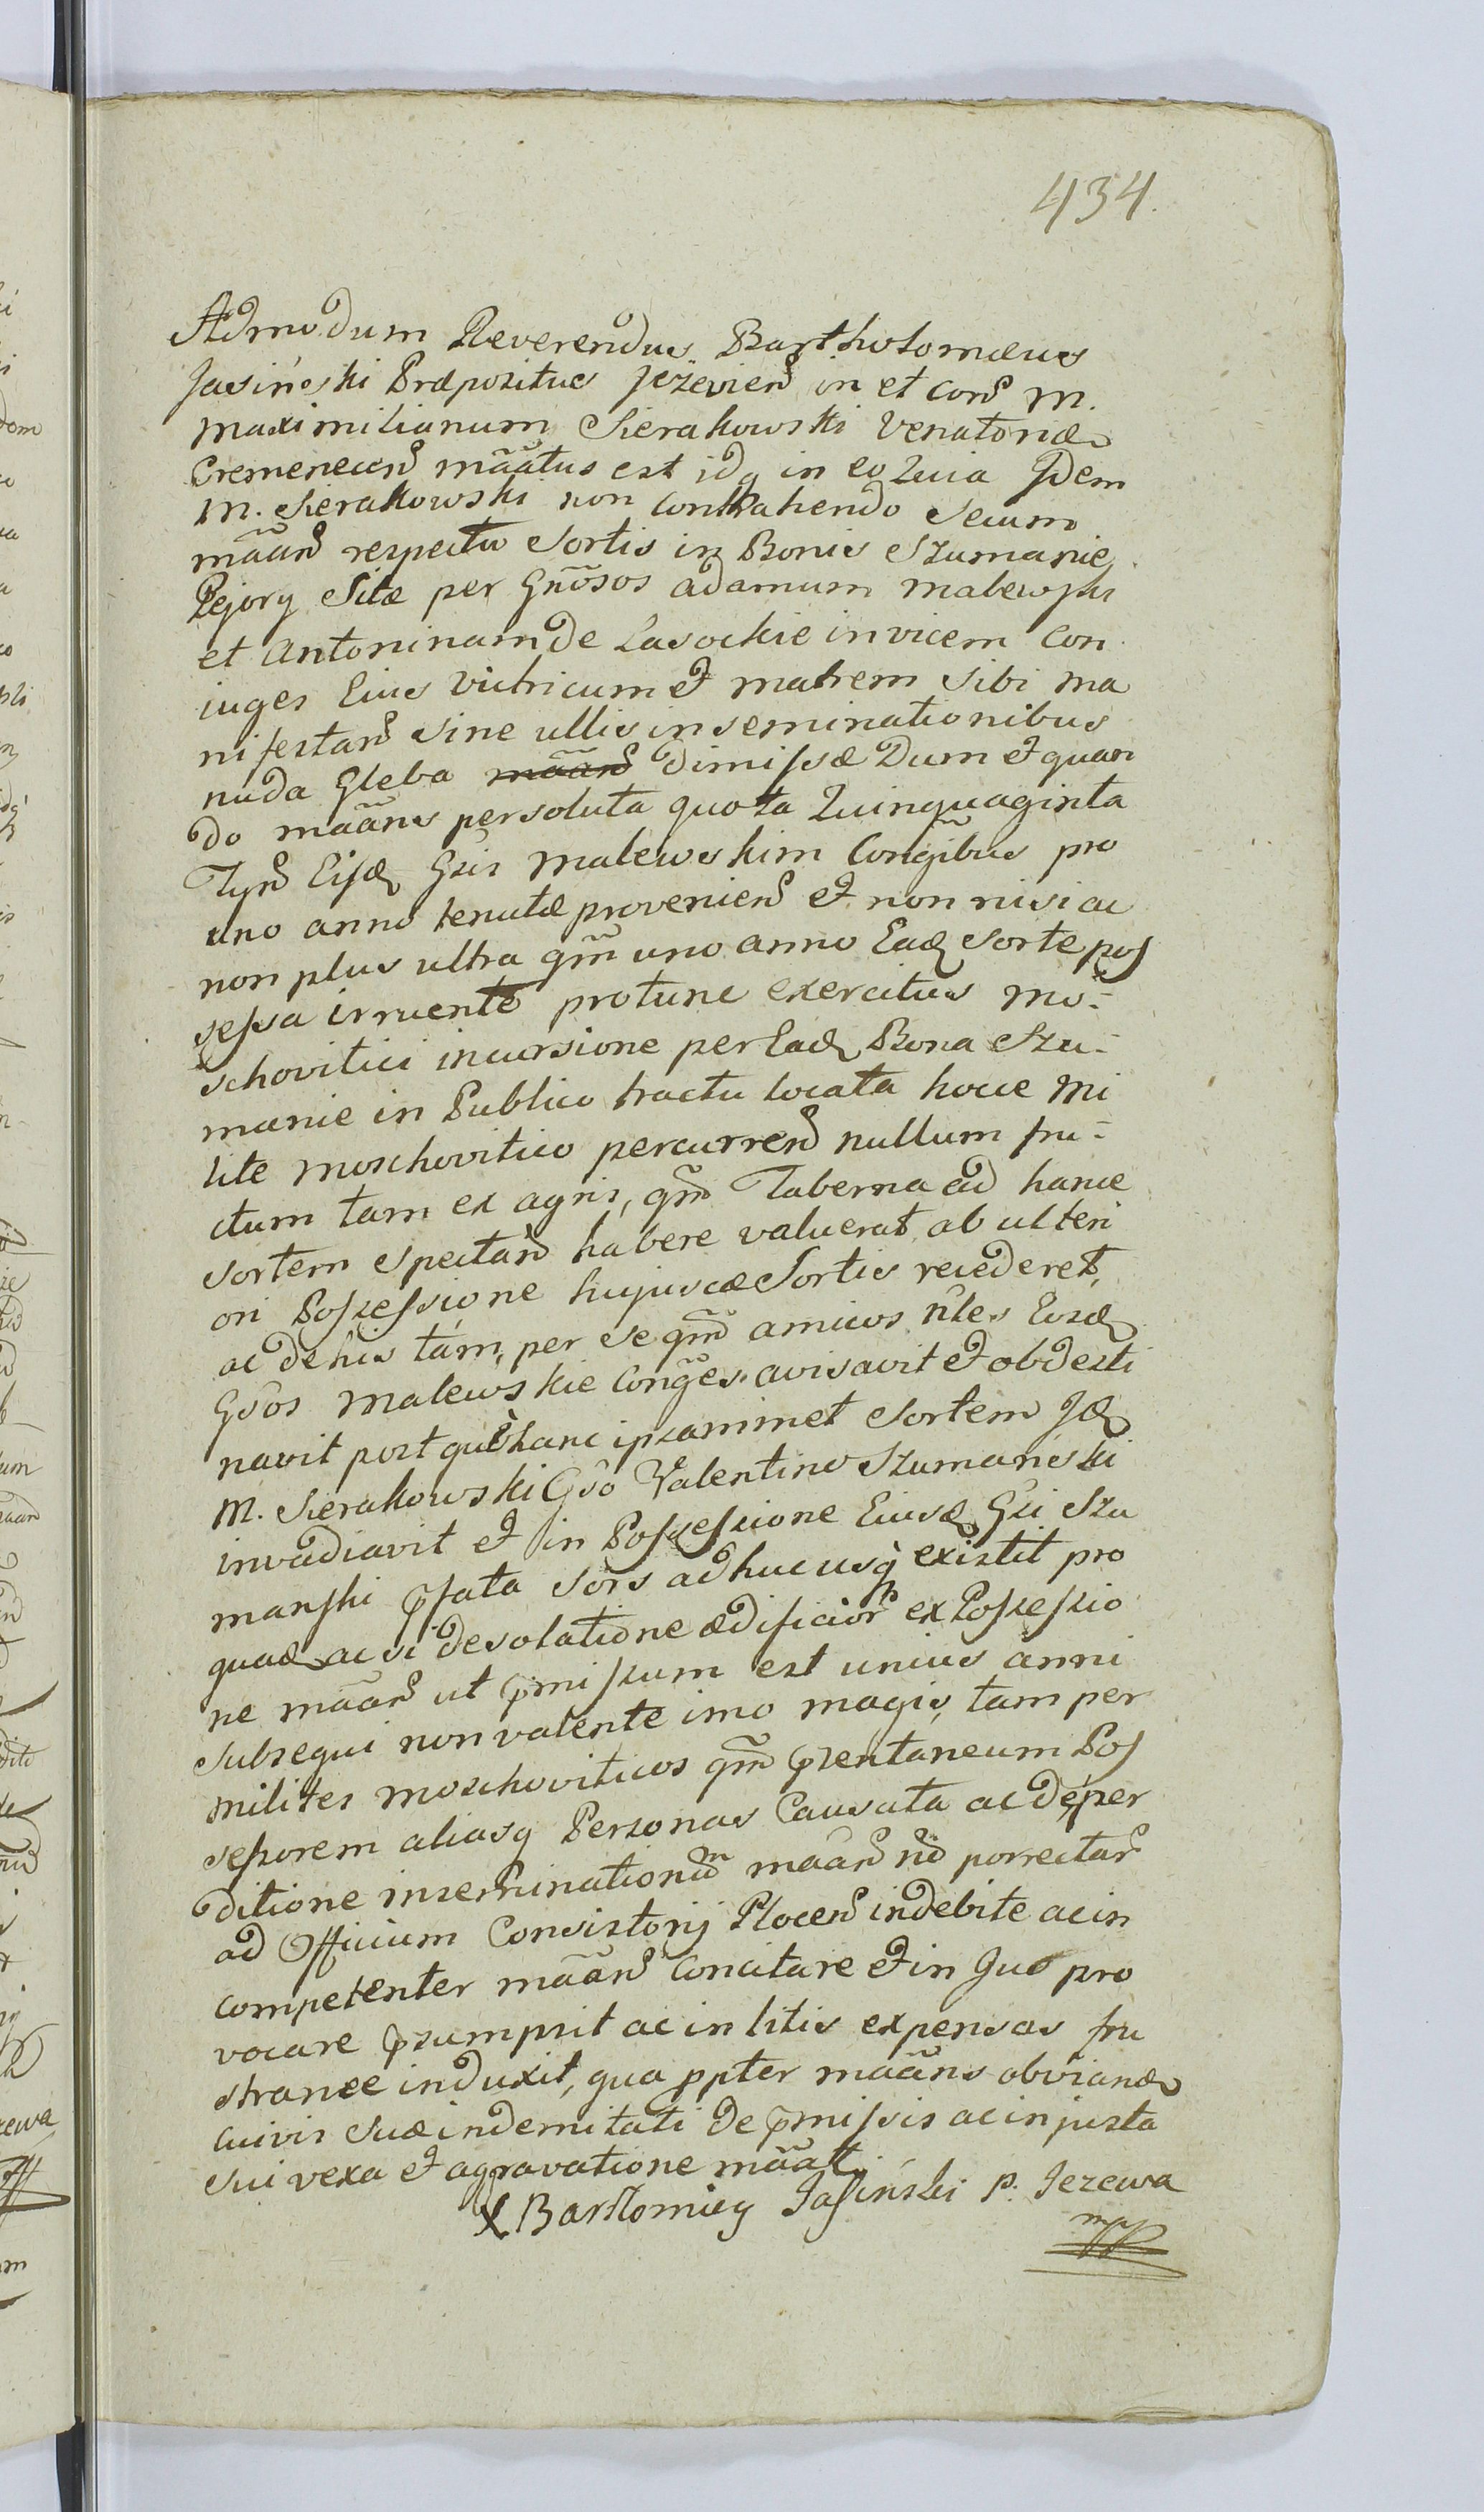 434.
Admodum Reverendus Bartholomæus
Jasiński Præpositus Jeżevień in et con̄ M.
Maximilianum Sierakowski Venatorid
Cremenecen̄ mããtus est idq in eo Quia Idem
M. Sierakowski non contrahendo Secum
mããn̄ respectu Sortis in Bonis Szumanie
Pejory Sitæ per Gnõsos Adamum Malewski
et Antoninam de Lasockie invicem Con
iuges Eius Vitricum et Matrem Sibi ma
nifestan̄ Sine ullis inseminationibus
nuda Gleba mããn̄ dimissæ Dum et quan
do mããns persoluta quota Quinquaginta
Tyn̄ Eisd Gsis Malewskim Congibus pro
uno anno tenutæ provenien̄ et non nisi ac
non plus ultra qm̃ uno anno Ead Sorte pos
sessa irruente protunc exercitus Mo:
schovitici incursione per Ead Bona Szu:
manie in Publico tractu locata hocce Mi
lite Moschovitico percurren̄ nullum fru:
ctum tam ex agris, qm̃ Taberna ad hance
Sortem Spectan̄ habere valuerat, ab ulteri
ori Possessione hujuscæ Sortis recederet,
ac de his tam, per se qm̃ amicos ñles Eosd
Gsos Malewskie Conges. avisavit et obdesti
navit post quæ hanc ipsammet Sortem Id
M. Sierakowski Gso Valentino Szumański
invadiavit et in Possessione Eiusd Gsi Szu
manski p̃fata Sors adhucusq existit pro
quad ac si desolatione ædificior̃ ex Possessio
ne mããn̄ ut p̃missum est unius anni
Subsequi non valente imo magis, tam per
milites Moschoviticos qm̃ p̃sentaneum Pos
sessorem aliasq Personas Causata ac deper
ditione inseminationũm mããn̄ ñd porrectan̄
ad Officium Consistorij Plocen̄ indebite ac in
competenter mããn̄ Concitare et in Jus pro
vocare p̃sumpsit ac in litis expensas fru
stranee induxit, qua ppter mããns obviand
cuivis Suæ indemnitati de p̃missis ac injusta
Sui vexa et agravatione mããt.
X Bartłomiey Jasiński p. Jezewa
mpp